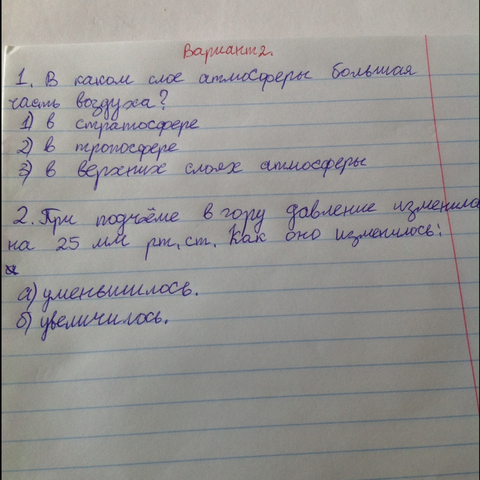 Вариант 2.
1. В каком слое атмосферы большая
часть воздуха?
1) в стратосфере
2) в тропосфере
3) в верхних слоях атмосферы
2. При подъёме в гору давление изменило
на 25 мм рт. ст. Как оно изменилось:
а) уменьшилось.
б) увеличилось.